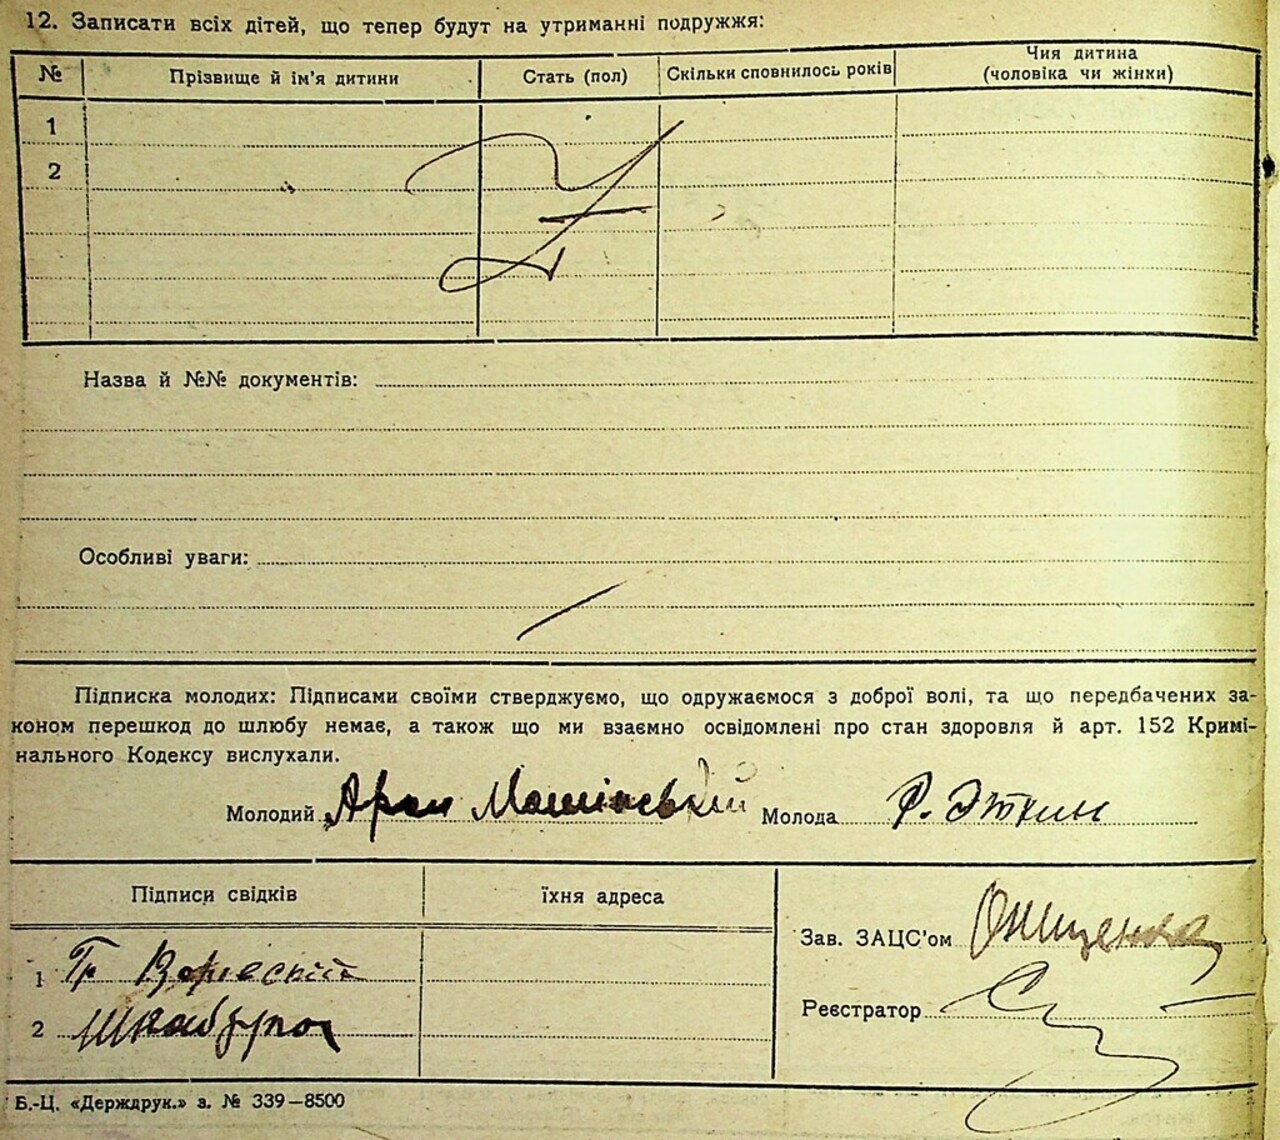 12. Записати всіх дітей, що тепер будут на утриманні подружжя:
№ Прізвище й ім’я дитини Стать (пол) Скільки сповнилось років Чия дитина
(чоловіка чи жінки)
1
2
Назва й №№ документів:
Особливі уваги:
Підписка молодих: Підписами своїми стверджуємо, що одружаємося з доброї волі, та що передбачених за-
коном перешкод до шлюбу немає, а також що ми взаємно освідомлені про стан здоровля й арт. 152 Кримі-
нального Кодексу вислухали.
Молодий Молода Р. Эткин
Підписи свідків їхня адреса
Зав. ЗАЦС’ом Онищенко
1
Реєстратор
2
Б.-Ц. «Держдрук.» з. № 339—8500